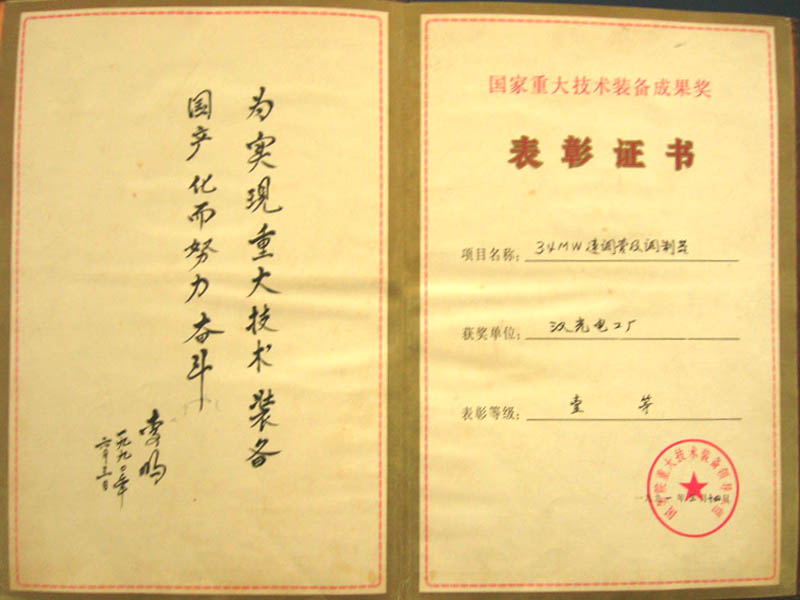 为实现重大技术装备
国产化而努力奋斗
李鹏
一九九〇年
六月三日
国家重大技术装备成果奖
表彰证书
项目名称：34MW速调管及调制器
获奖单位：汉光电工厂
表彰等级：壹 等
国务院重大技术装备领导小组
一九九一年